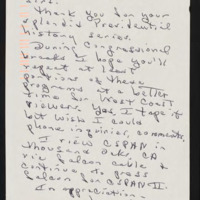 Thank you for your
splendid Presidential
history series.
During Congressional
breaks I hope you'll
repeat at least
portions of these
programs at a better
time for West Coast
viewers. Yes, I tape it
but wish I could
phone inquiries, comments.
I view CSPAN in
Thousand Oaks, CA
via Falcon cable &
continue to press
Falcon for CSPAN II.
In appreciation,